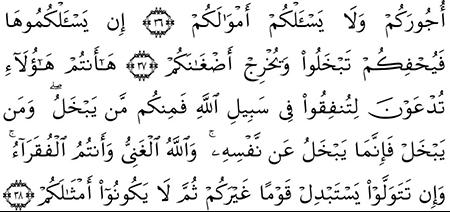 أُجُورَكُمْ وَلَا يَسْـَٔلْكُمْ أَمْوَٰلَكُمْ ۝٣٦ إِن يَسْـَٔلْكُمُوهَا
فَيُحْفِكُمْ تَبْخَلُوا۟ وَيُخْرِجْ أَضْغَـٰنَكُمْ ۝٣٧ هَـٰٓأَنتُمْ هَـٰٓؤُلَآءِ
تُدْعَوْنَ لِتُنفِقُوا۟ فِى سَبِيلِ ٱللَّهِ فَمِنكُم مَّن يَبْخَلُ ۖ وَمَن
يَبْخَلْ فَإِنَّمَا يَبْخَلُ عَن نَّفْسِهِۦ ۚ وَٱللَّهُ ٱلْغَنِىُّ وَأَنتُمُ ٱلْفُقَرَآءُ ۚ
وَإِن تَتَوَلَّوْا۟ يَسْتَبْدِلْ قَوْمًا غَيْرَكُمْ ثُمَّ لَا يَكُونُوٓا۟ أَمْثَـٰلَكُم ۝٣٨